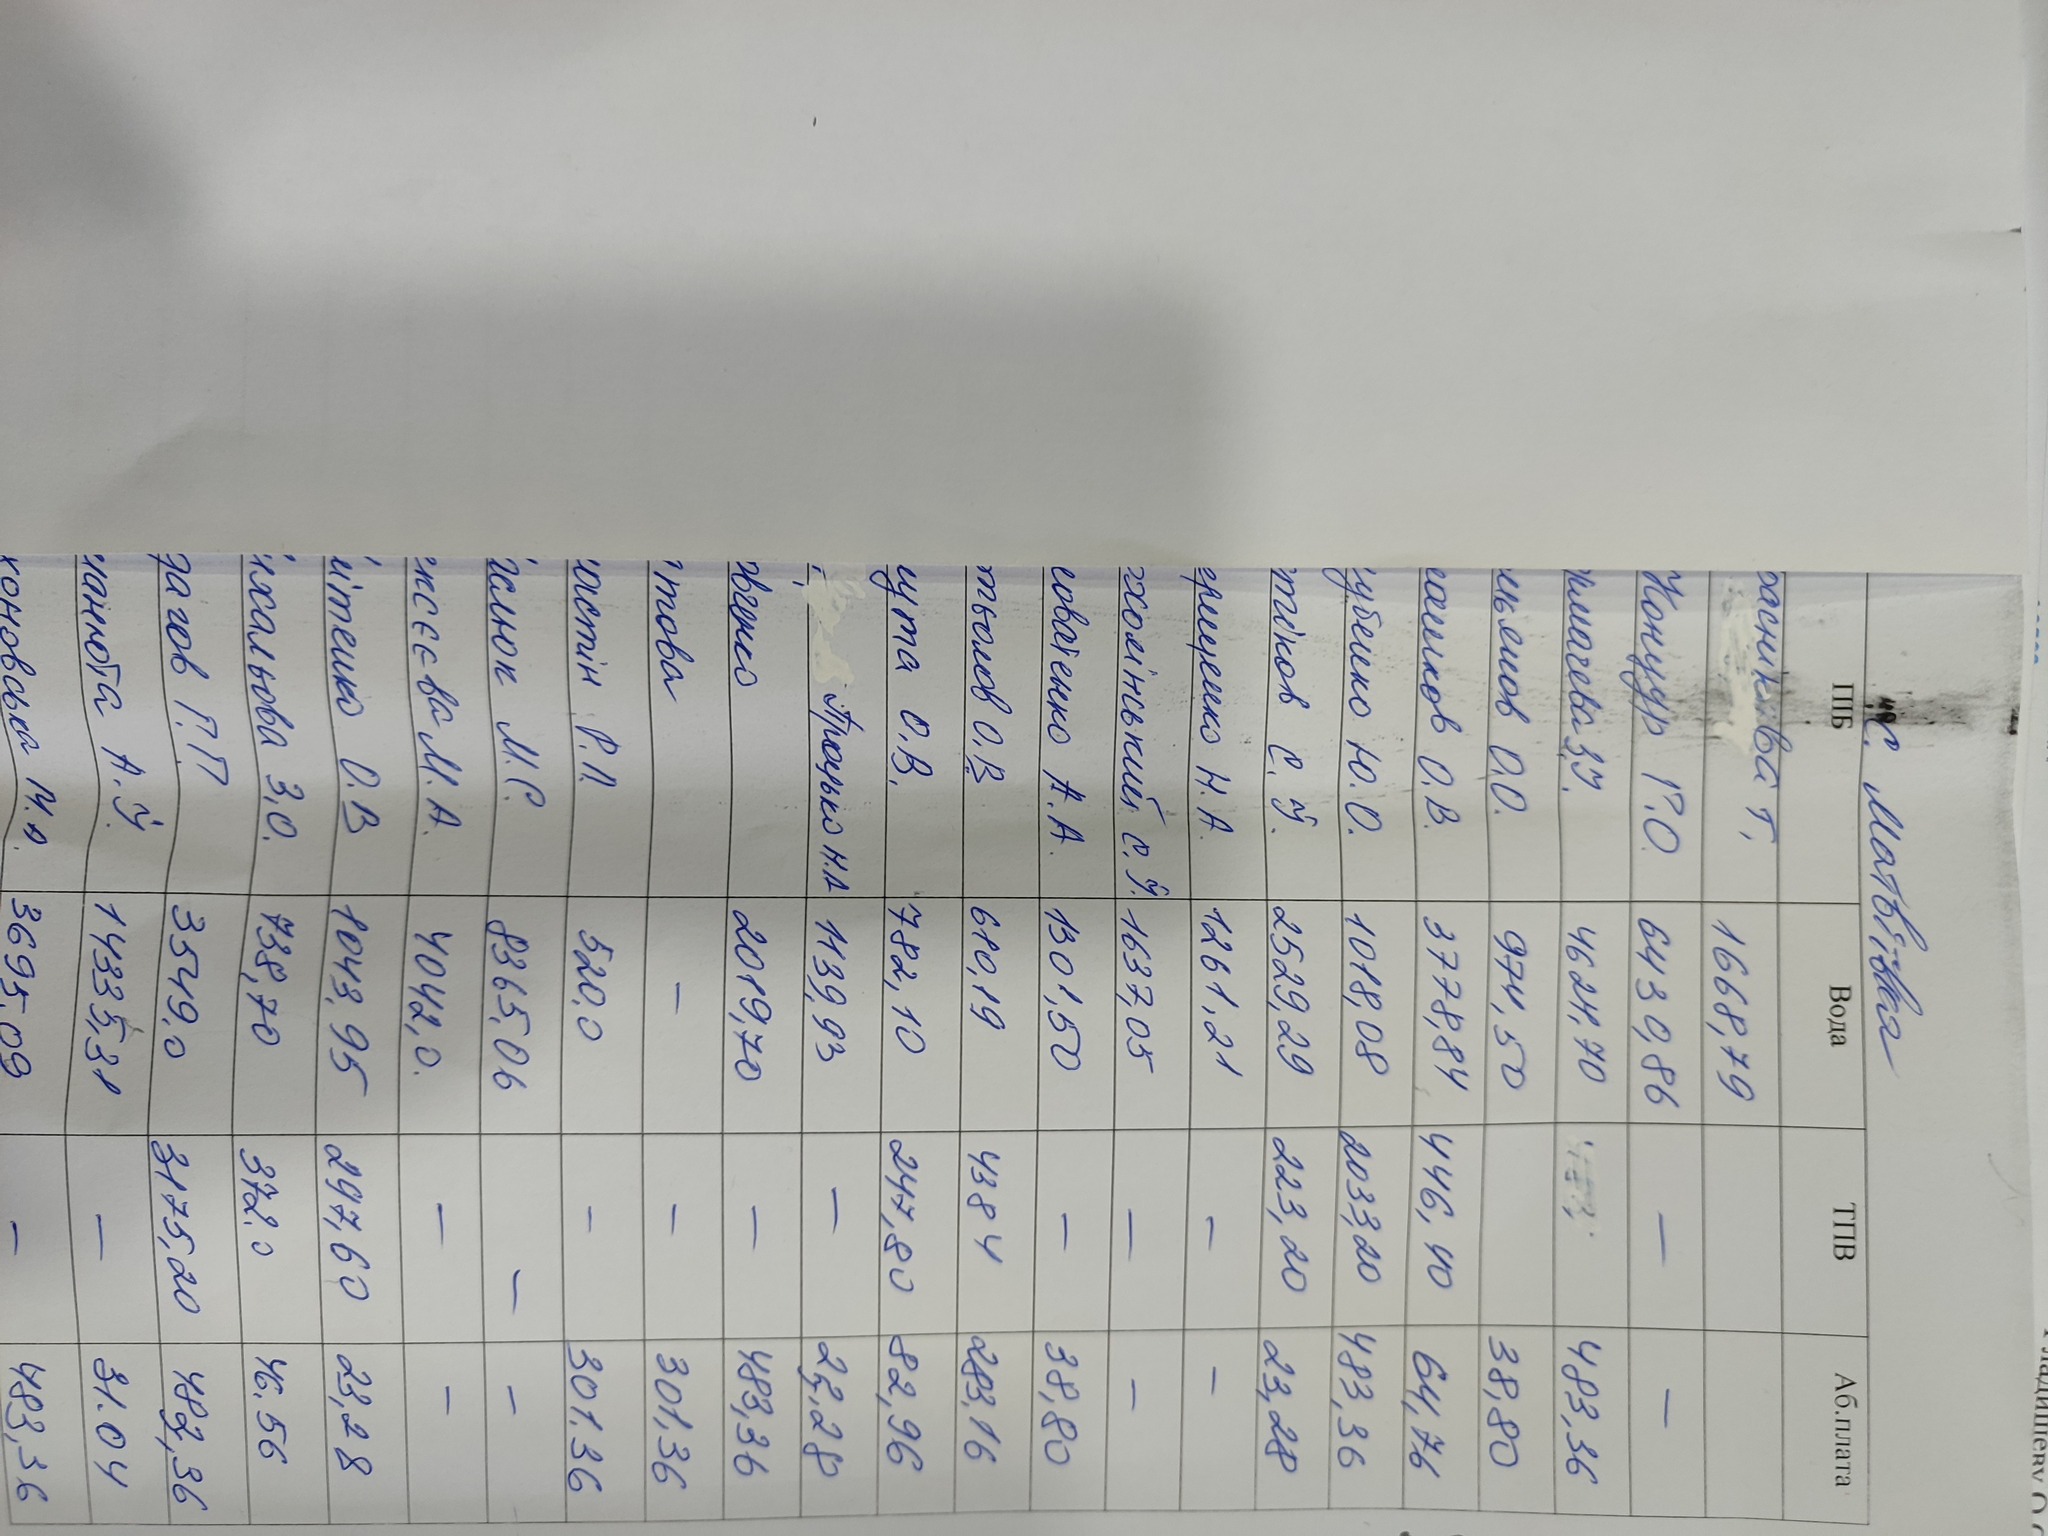 с. Матвіївка
ПІБ Вода ТПВ Аб.плата
раснікова Т. 1668,79
Концур Г.О. 6430,86 — —
рмачева З.І. 4624,70 483,36
ельянов О.О. 974,50 38,80
машков О.В. 3778,84 446,40 64,76
убенко Ю.О. 1018,08 2033,20 483,36
ртінов С.І. 2529,29 223,20 23,28
ерещенко Н.А. 1261,21 — —
ихолінський С.І. 1637,05 — —
новаєнко А.А. 1301,50 — 38,80
тьомов О.В 680,19 4384 283,16
щута О.В. 782,10 247,80 82,96
Процько Н.А 1139,93 — 23,28
овченко 2019,70 — 483,36
ітова — — 301,36
настін Р.П. 520,0 — 301.36
асилюк М.С. 8365,06 — —
ексєєва М.А. 4042,0. — —
мітенко О.В 1043,95 297,60 23,28
іхальова З.О. 738,70 372.0 46.56
рагов П.П 3549,0 3175,20 483,36
манюта А.І. 1433,31 — 31.04
хоновська М.А. 3695,09 — 483,36